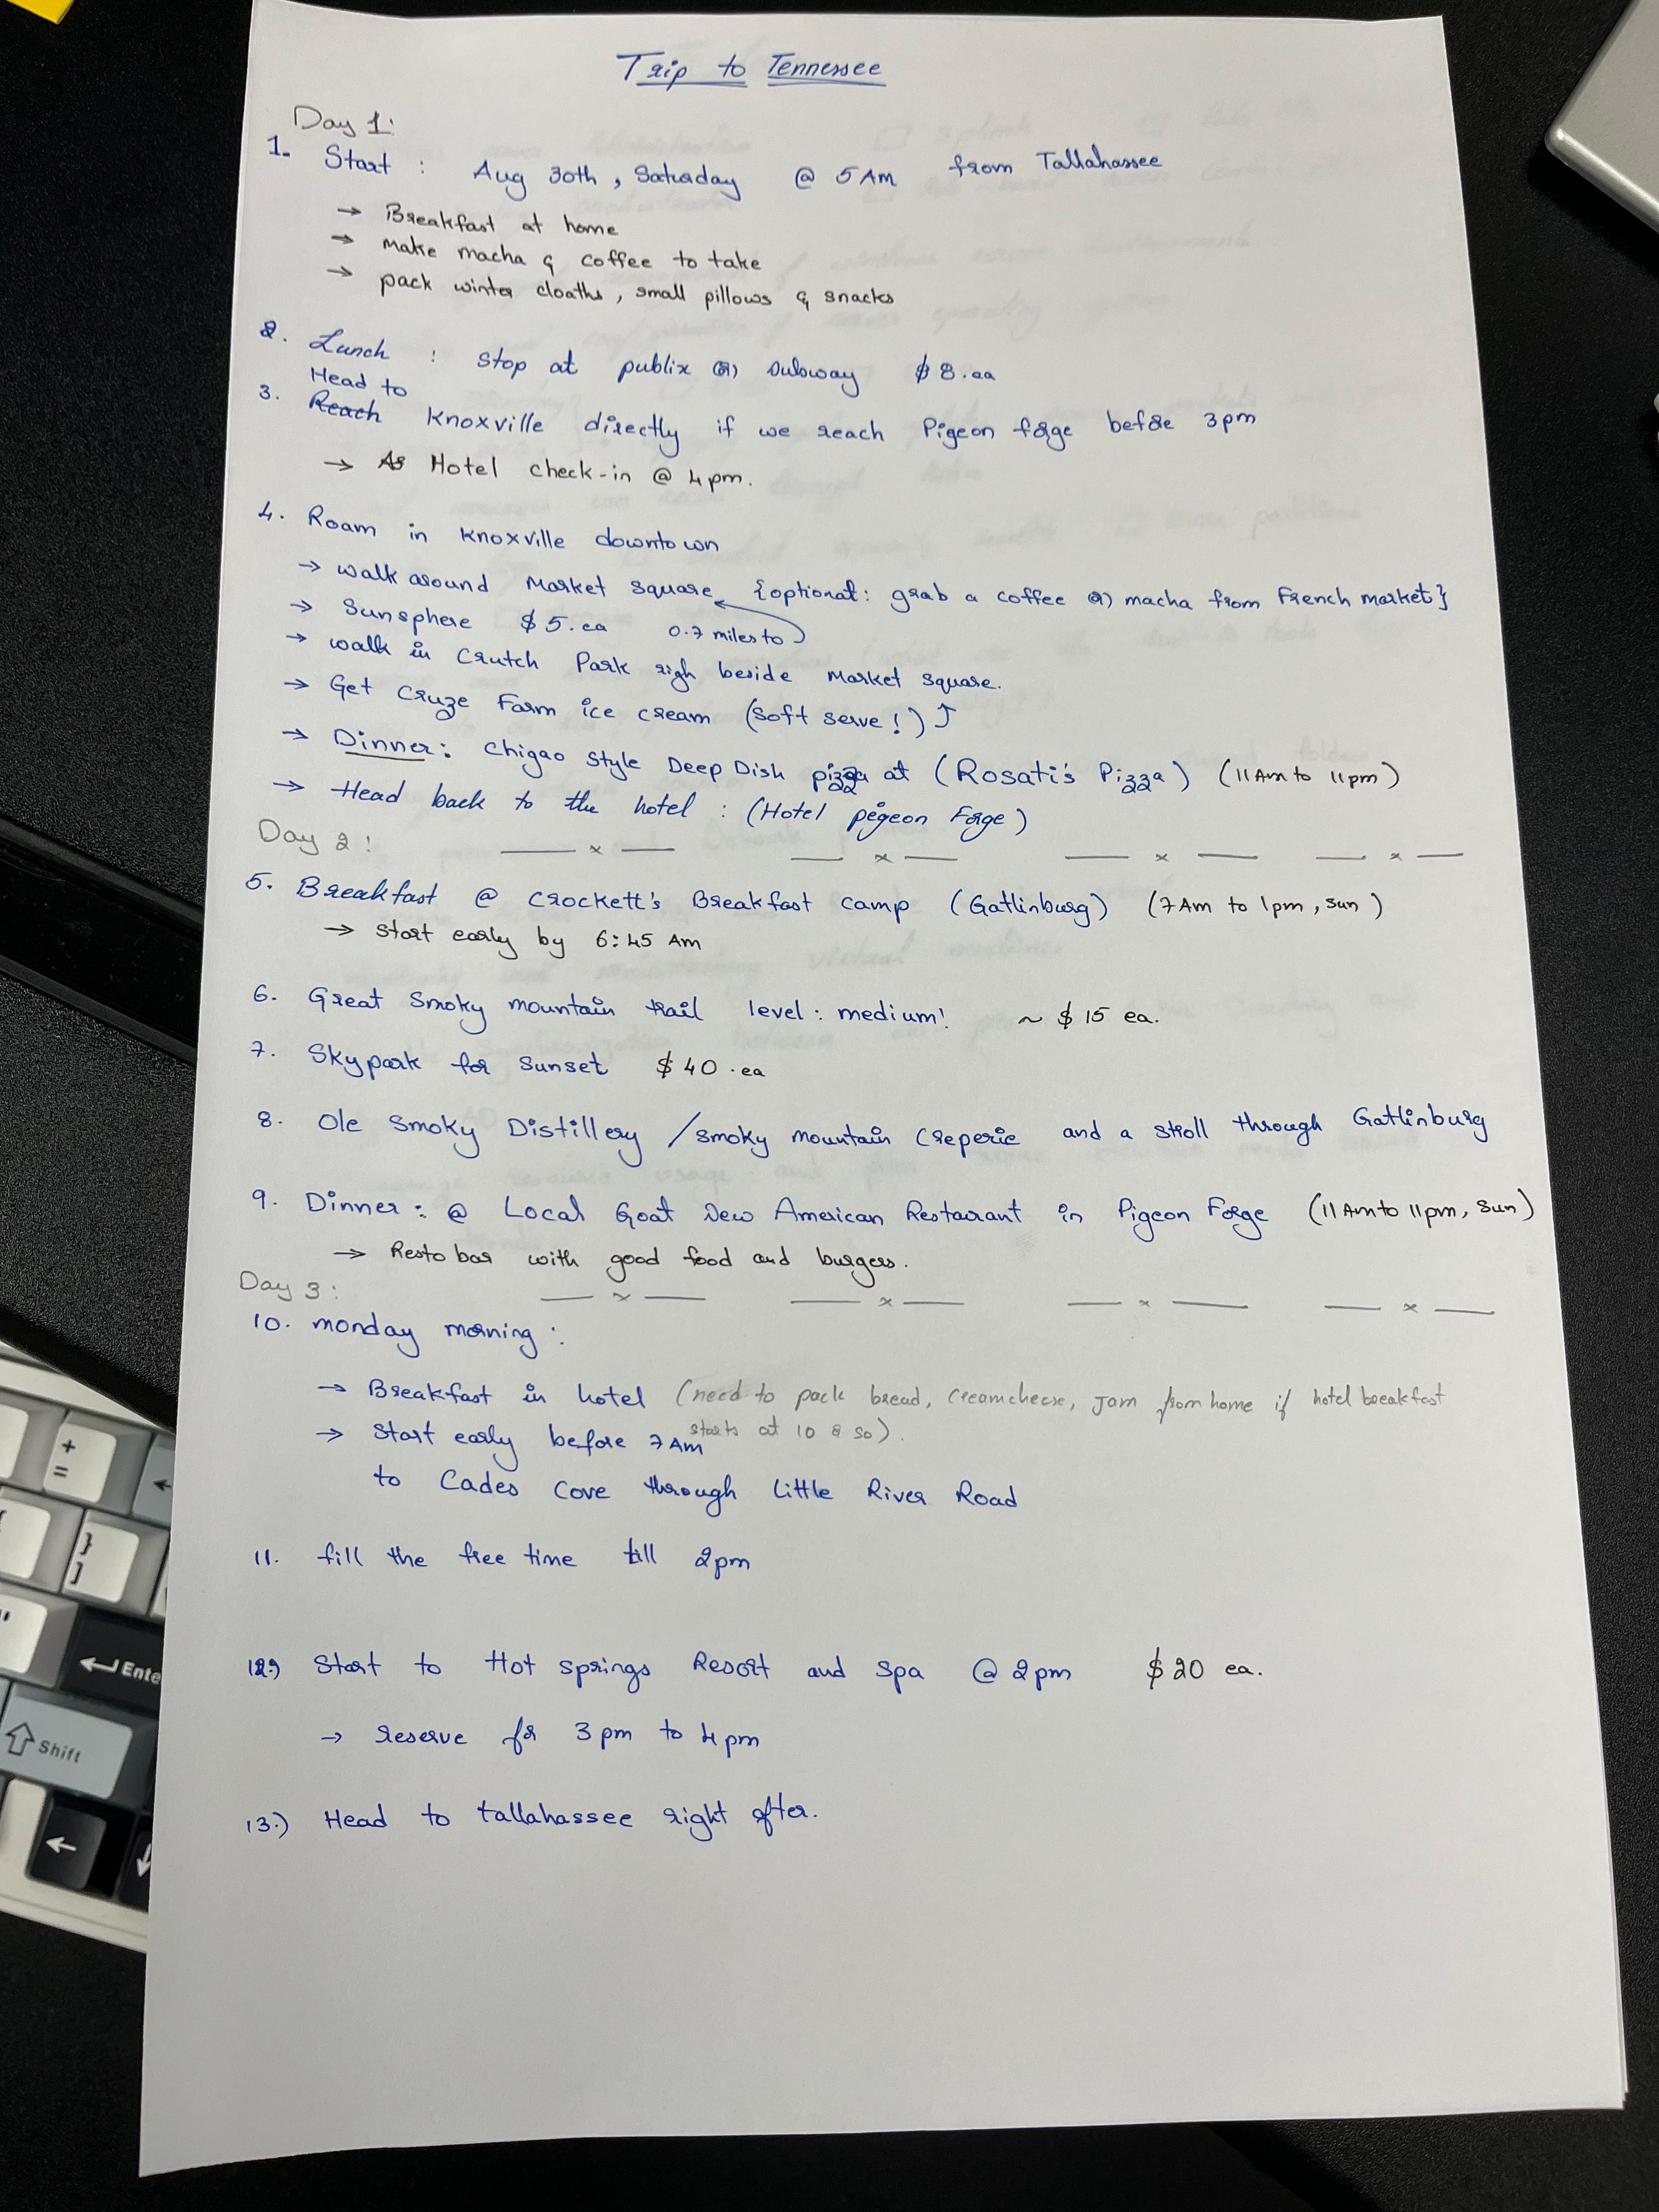 Trip to Tennessee
Day 1:
1. Start : Aug 30th, Saturday @ 5 AM from Tallahassee
→ Breakfast at home
→ make macha & coffee to take
→ pack winter cloaths, small pillows & snacks
2. Lunch : stop at publix (or) subway $8.ea
Head to
3. Reach Knoxville directly if we reach Pigeon forge before 3pm
→ As Hotel check-in @ 4pm.
4. Roam in Knoxville downtown
→ walk around Market Square {optional: grab a coffee (or) macha from French market}
→ Sunsphere $5.ea 0.7 miles to
→ walk in Crutch Park righ beside Market Square.
→ Get Cruze Farm ice cream (soft serve!) ↑
→ Dinner: Chigao Style Deep Dish pizza at (Rosati's Pizza) (11Am to 11pm)
→ Head back to the hotel : (Hotel pegeon Forge)
Day 2:
5. Breakfast @ Crockett's Breakfast camp (Gatlinburg) (7Am to 1pm, sun)
→ start early by 6:45 Am
6. Great Smoky mountain trail level: medium! ~ $15 ea.
7. Skypark for Sunset $40.ea
8. Ole Smoky Distillery / smoky mountain Creperie and a stroll through Gatlinburg
9. Dinner: @ Local Goat New American Restaurant in Pigeon Forge (11Am to 11pm, Sun)
→ Resto bar with good food and burgers.
Day 3:
10. monday morning:
→ Breakfast in hotel (need to pack bread, creamcheese, Jam from home if hotel breakfast
starts at 10 or so).
→ Start early before 7Am
to Cades Cove through Little River Road
11. fill the free time till 2pm
12.) Start to Hot springs Resort and spa @ 2pm $20 ea.
→ reserve for 3pm to 4pm
13.) Head to tallahassee right after.
+
=
}
]
Enter
Shift